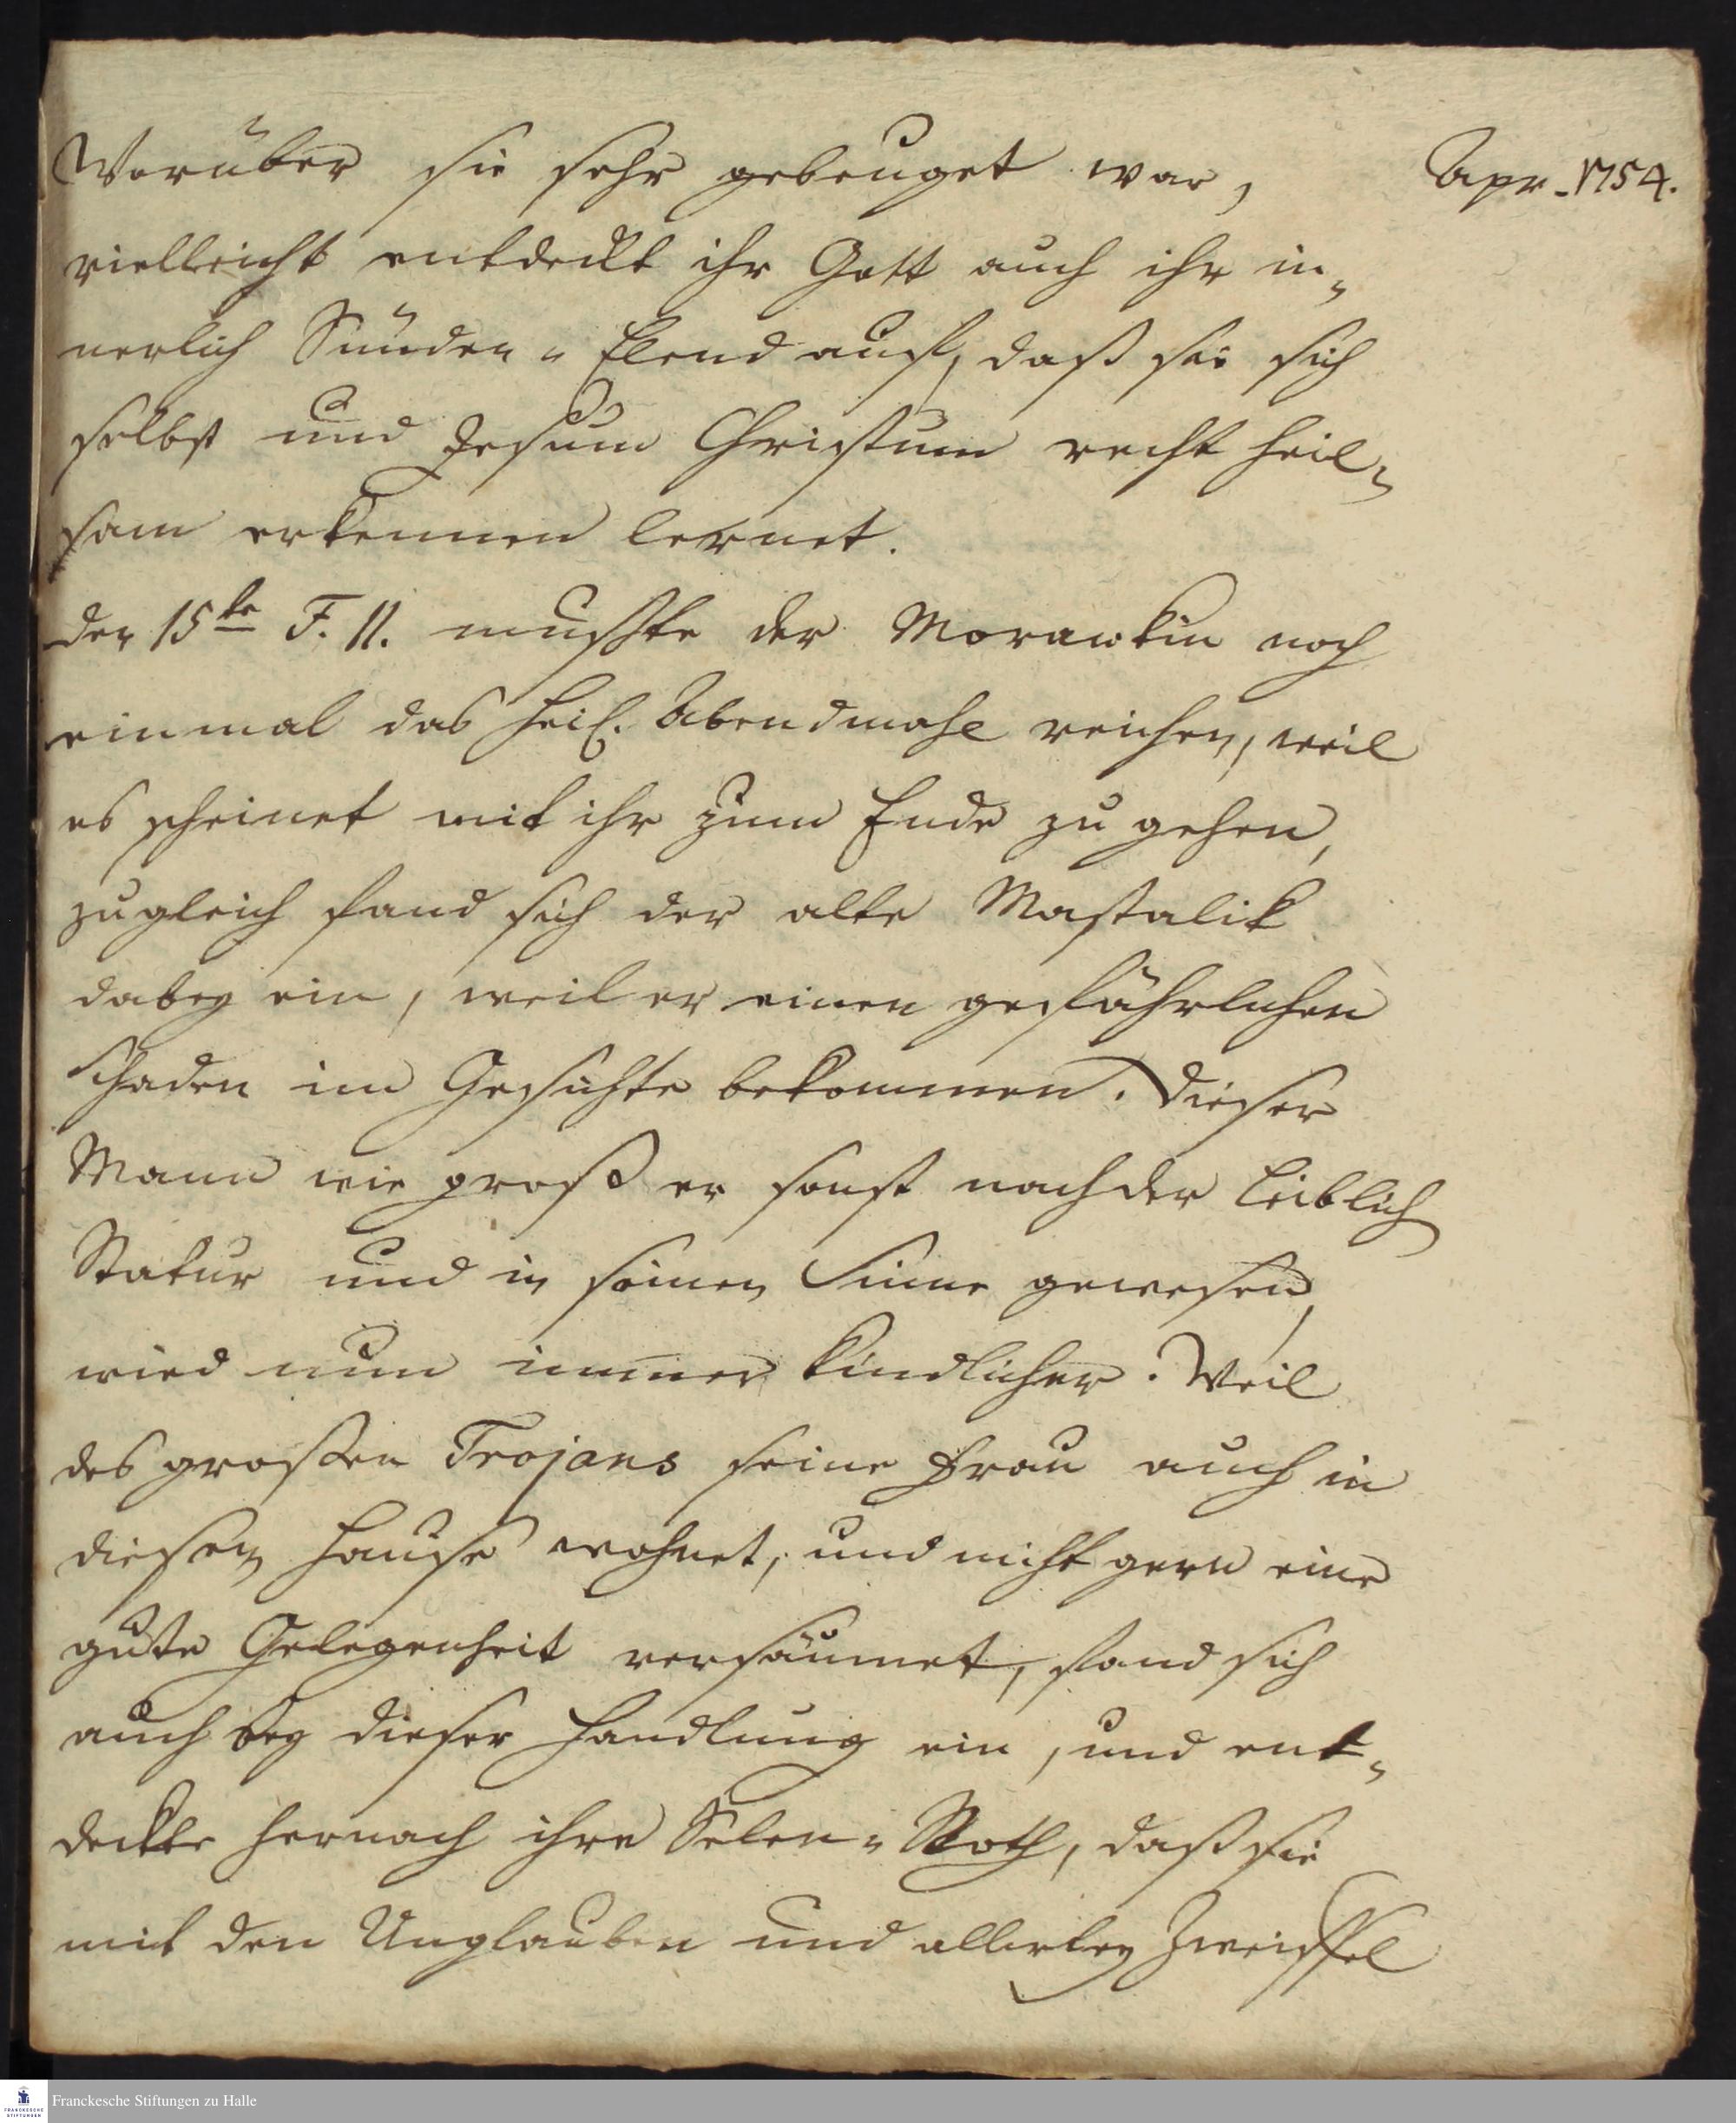 Worüber sie sehr gebeuget war,
Apr. 1754.
vielleicht entdeckt ihr Gott auch ihr in-
nerlich Sünden-Elend auf, daß sie sich
selbst und Jesum Christum recht heil-
sam erkennen lernet.
den 15te F. 11. mußte der Morawkin noch
einmal das heil. Abendmahl reichen, weil
es scheinet mit ihr zum Ende zu gehen,
zugleich fand sich der alte Mastalik
dabey ein, weil er einen gefährlichen
Schaden im Gesichte bekommen. Dieser
Mann wie groß er sonst nach der Leiblich
Statur und in seinen Sinne gewesen,
wird nun immer kindlicher. Weil
des großen Trojans seine Frau auch in
diesen Hause wohnet, und nicht gern eine
gute Gelegenheit versäumet, fand sich
auch bey dieser Handlung ein, und ent-
deckte hernach ihre Selen-Noth, daß sie
mit den Unglauben und allerley Zweiffel
Franckesche Stiftungen zu Halle
FRANCKESCHE
STIFTUNGEN